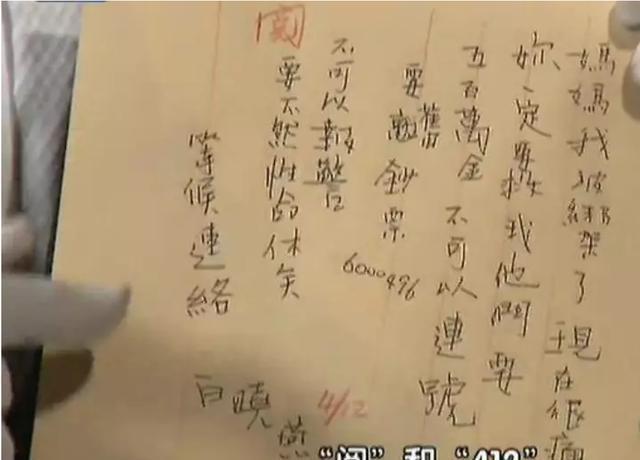 媽媽我被綁架了現在很痛
妳一定要救我他們要
五百萬金不可以連號
要舊鈔票
6000496
不可以報警
要不然性命休矣
等候連絡
白曉燕
4/12
閱
“阅”和“412”